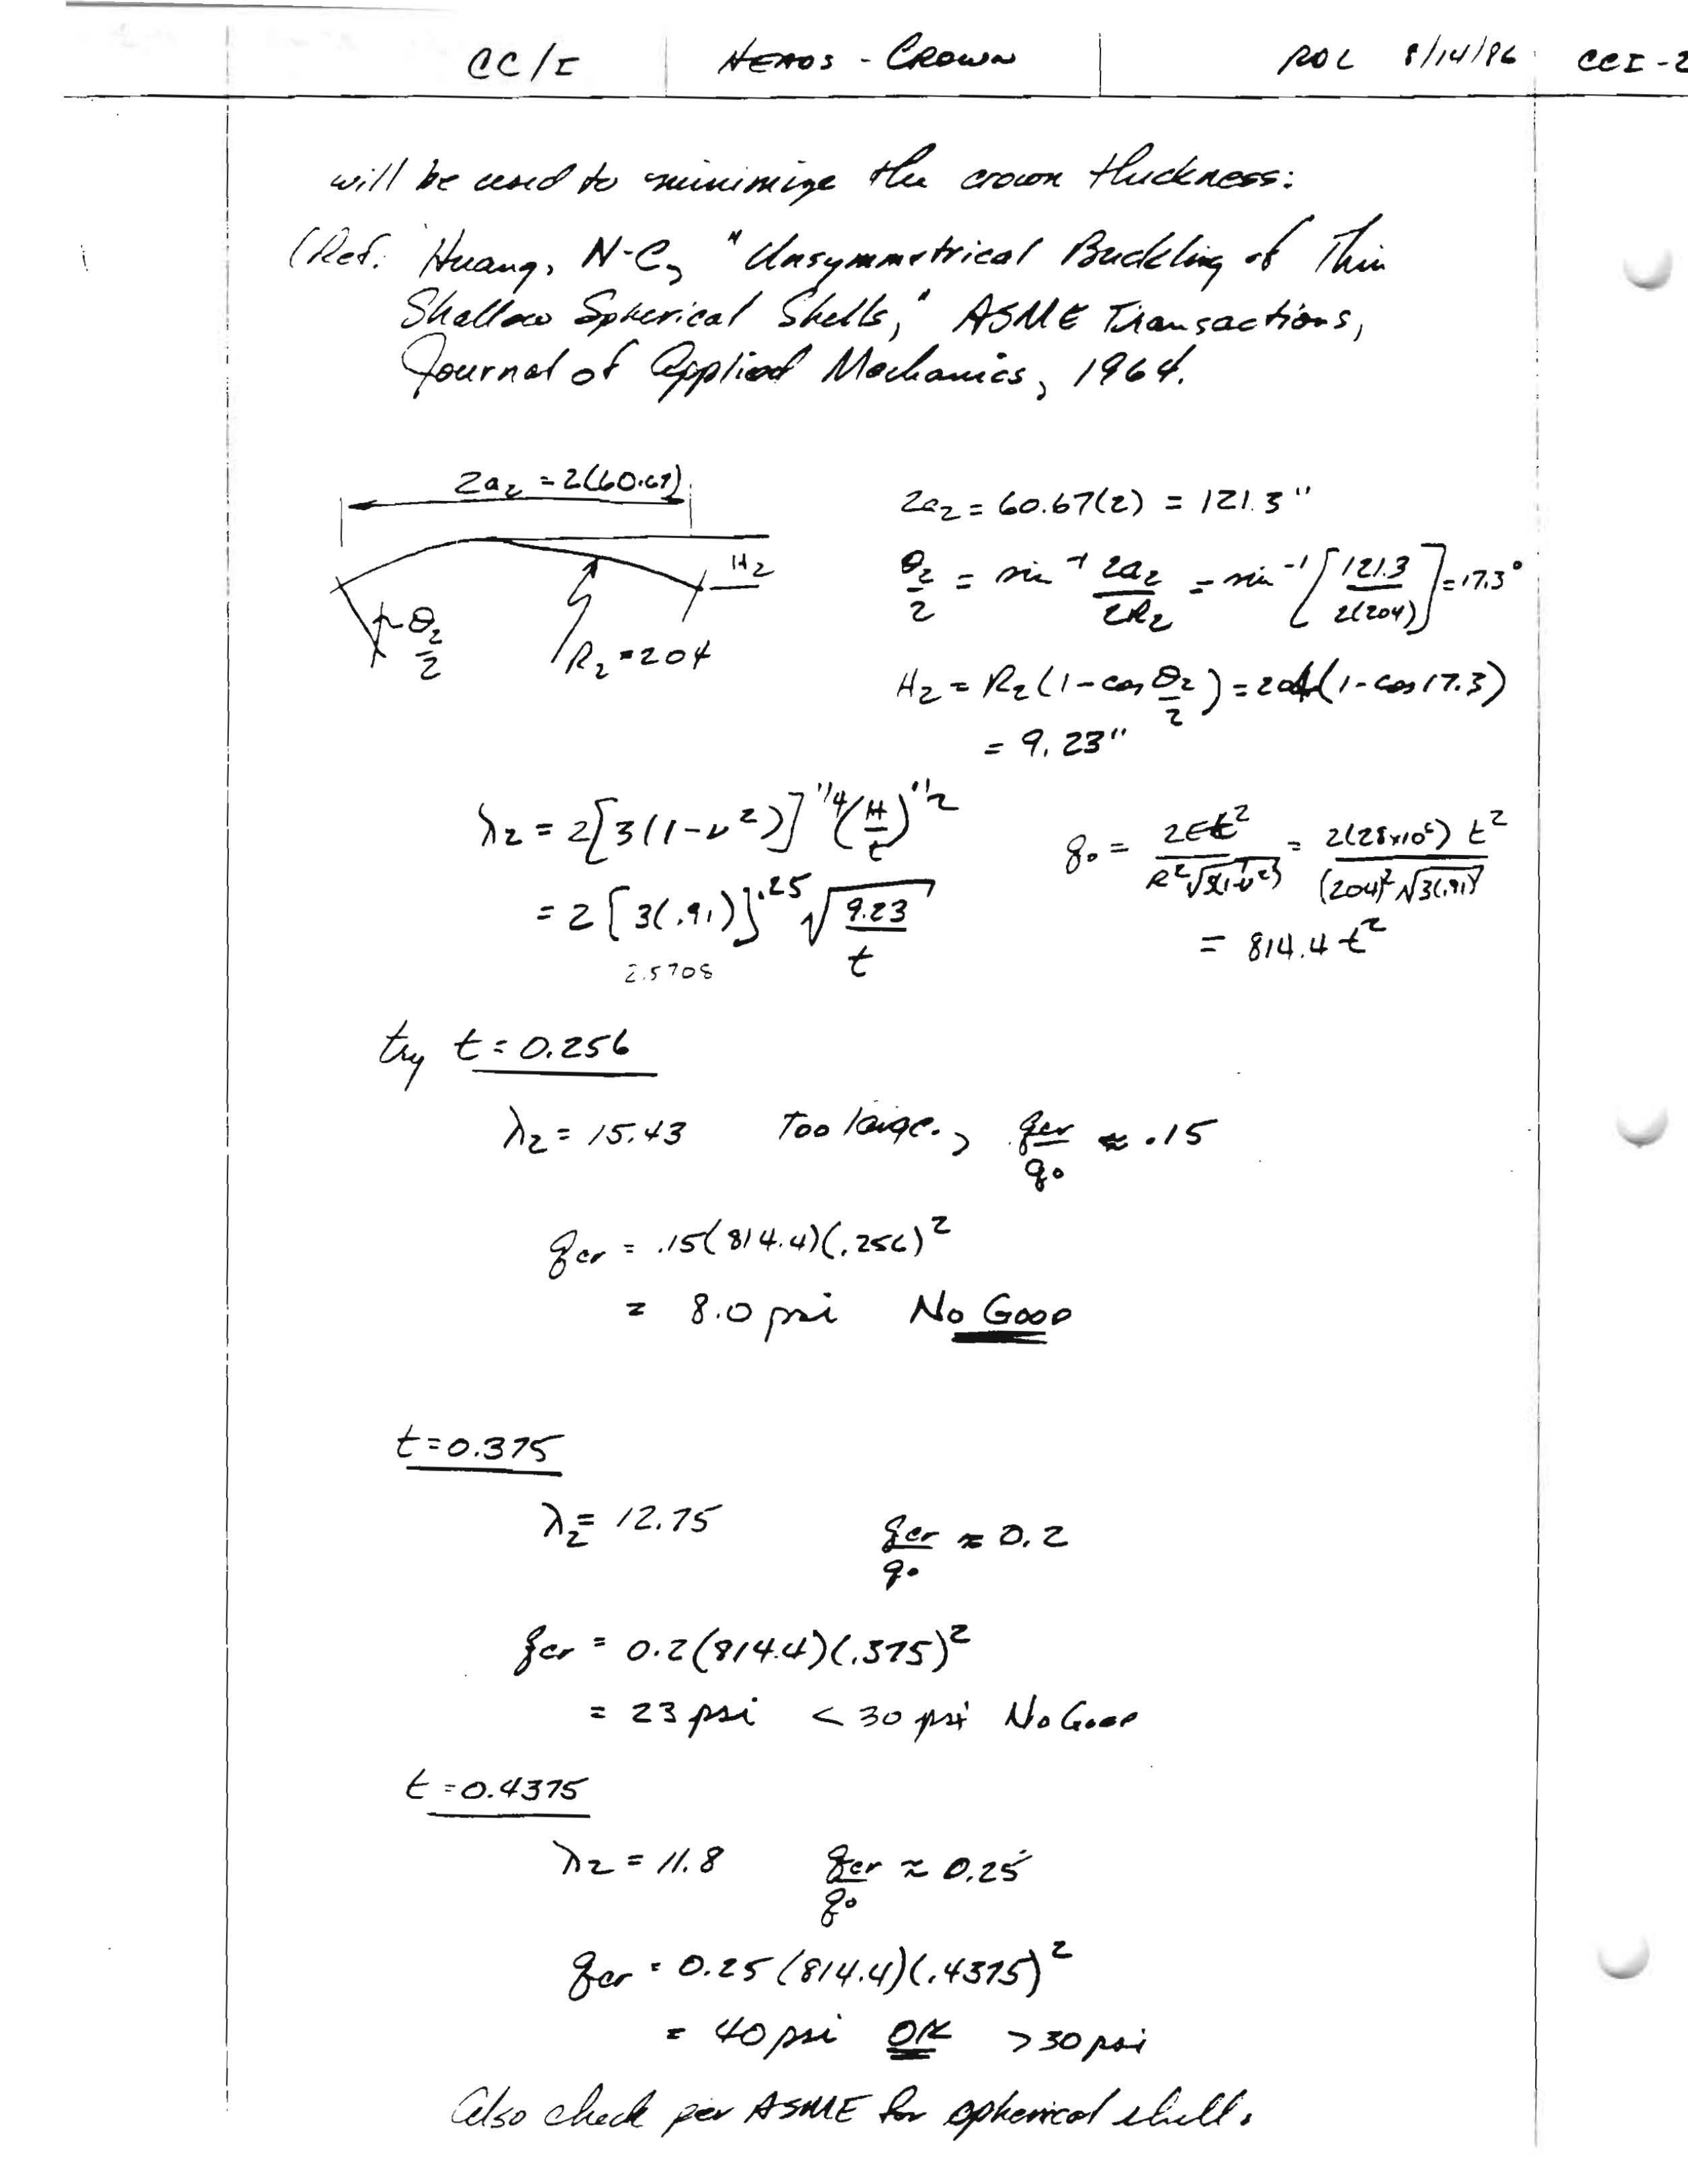 CC/I HEADS - CROWN RDL 8/14/86 CCI-2
will be used to minimize the crown thickness:
(Ref. Huang, N-C, "Unsymmetrical Buckling of Thin
Shallow Spherical Shells," ASME Transactions,
Journal of Applied Mechanics, 1964.
2a₂ = 2(60.67)
H₂
θ₂/2
R₂=204
2a₂ = 60.67(2) = 121.3"
θ₂/2 = sin⁻¹ 2a₂/2R₂ = sin⁻¹[121.3/2(204)] = 17.3°
H₂ = R₂(1-cos θ₂/2) = 204(1-cos 17.3)
= 9.23"
λ₂ = 2[3(1-ν²)]^1/4 (H/t)^1/2
= 2[3(.91)]^.25 √(9.23/t)
2.5708
q₀ = 2Et²/R²√3(1-ν²) = 2(28x10⁶) t²/(204)²√3(.91)
= 814.4 t²
try t = 0.256
λ₂ = 15.43 Too large, qcr/q₀ ≈ .15
qcr = .15(814.4)(.256)²
= 8.0 psi No Good
t=0.375
λ₂ = 12.75 qcr/q₀ ≈ 0.2
qcr = 0.2(814.4)(.375)²
= 23 psi < 30 psi No Good
t = 0.4375
λ₂ = 11.8 qcr/q₀ ≈ 0.25
qcr = 0.25(814.4)(.4375)²
= 40 psi OK > 30 psi
Also check per ASME for spherical shell.